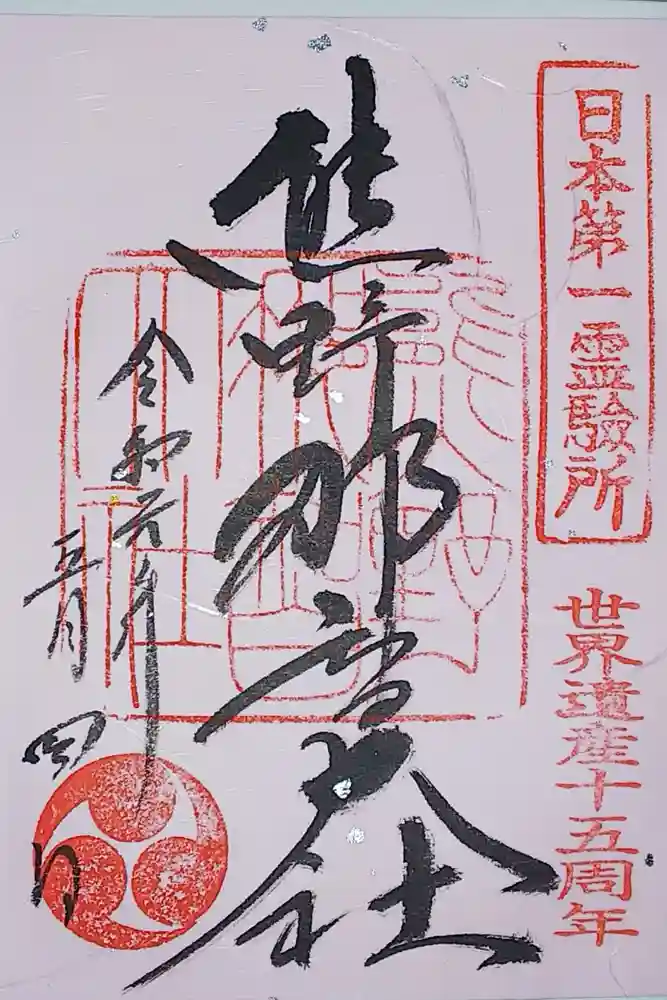 日本第一霊験所
世界遺産十五周年
熊野那智大社
令和元年
五月四日